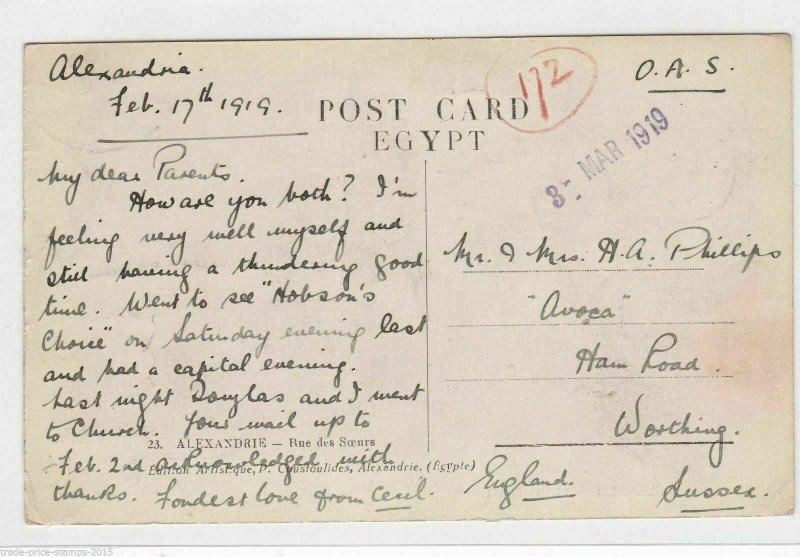 Alexandria.
Feb. 17th 1919.
172
O.A.S.
POST CARD
EGYPT
3 MAR 1919
My dear Parents.
How are you both? I'm
feeling very well myself and
still having a thundering good
time. Went to see "Hobson's
Choice" on Saturday evening last
and had a capital evening.
Last night Douglas and I went
to Church. Your mail up to
Feb. 2nd acknowledged with
thanks. Fondest love from Cecil.
23. ALEXANDRIE — Rue des Sœurs
Edition Artistique, P. Coustoulides, Alexandrie. (Égypte)
Mr. & Mrs. H.A. Phillips
"Avoca"
Ham Road.
Worthing.
England. Sussex.
trade-price-stamps-2015